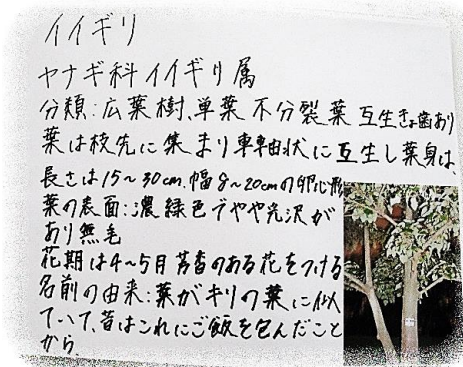 イイギリ
ヤナギ科イイギリ属
分類：広葉樹、単葉 不分裂葉 互生きょ歯あり
葉は枝先に集まり車軸状に互生し葉身は、
長さは15〜30cm.幅8〜20cmの卵心形
葉の表面：濃緑色でやや光沢が
あり無毛
花期は4〜5月 芳香のある花をつける
名前の由来：葉がキリの葉に似
ていて、昔はこれにご飯を包んだこと
から.